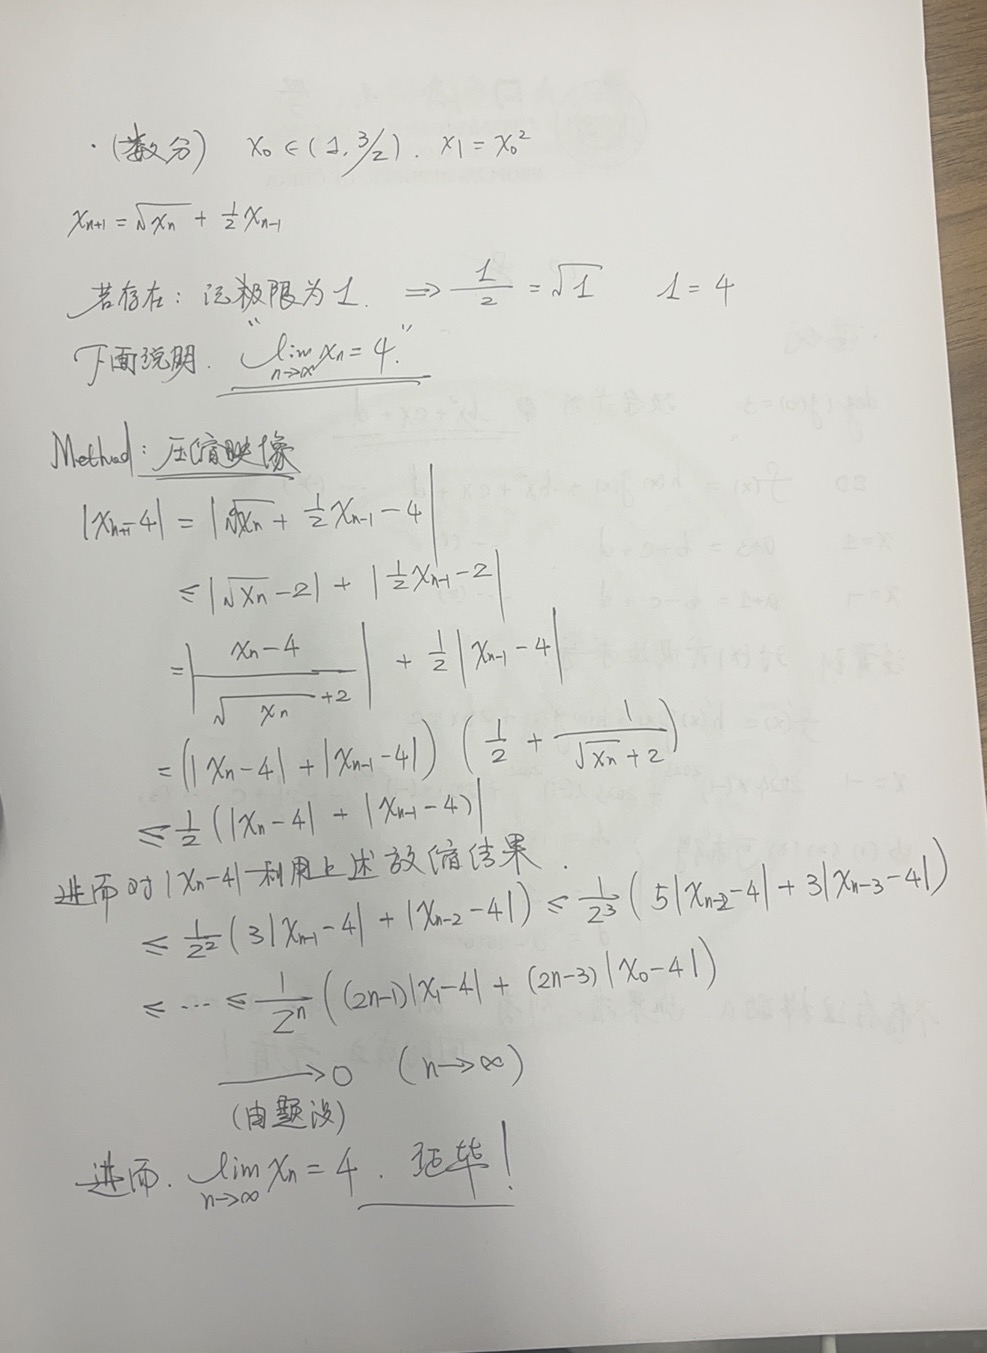 ·(数分) x₀∈(1,3/2). x₁=x₀²
xₙ₊₁=√xₙ + 1/2 xₙ₋₁
若存在: 记极限为l. ⇒ l/2=√l l=4
下面说明. "lim_{n→∞} xₙ=4."
Method: 压缩映像
|xₙ₊₁-4| = |√xₙ + 1/2 xₙ₋₁ - 4|
≤ |√xₙ - 2| + |1/2 xₙ₋₁ - 2|
= |(xₙ-4)/(√xₙ+2)| + 1/2 |xₙ₋₁ - 4|
= (|xₙ-4| + |xₙ₋₁-4|) (1/2 + 1/(√xₙ+2))
≤ 1/2 (|xₙ-4| + |xₙ₋₁-4)|
进而对|xₙ-4|利用上述放缩结果.
≤ 1/2² (3|xₙ₋₁-4| + |xₙ₋₂-4|) ≤ 1/2³ (5|xₙ₋₂-4| + 3|xₙ₋₃-4|)
≤ ··· ≤ 1/2ⁿ ((2n-1)|x₁-4| + (2n-3)|x₀-4|)
→0 (n→∞)
(由题设)
进而. lim_{n→∞} xₙ=4. 证毕!